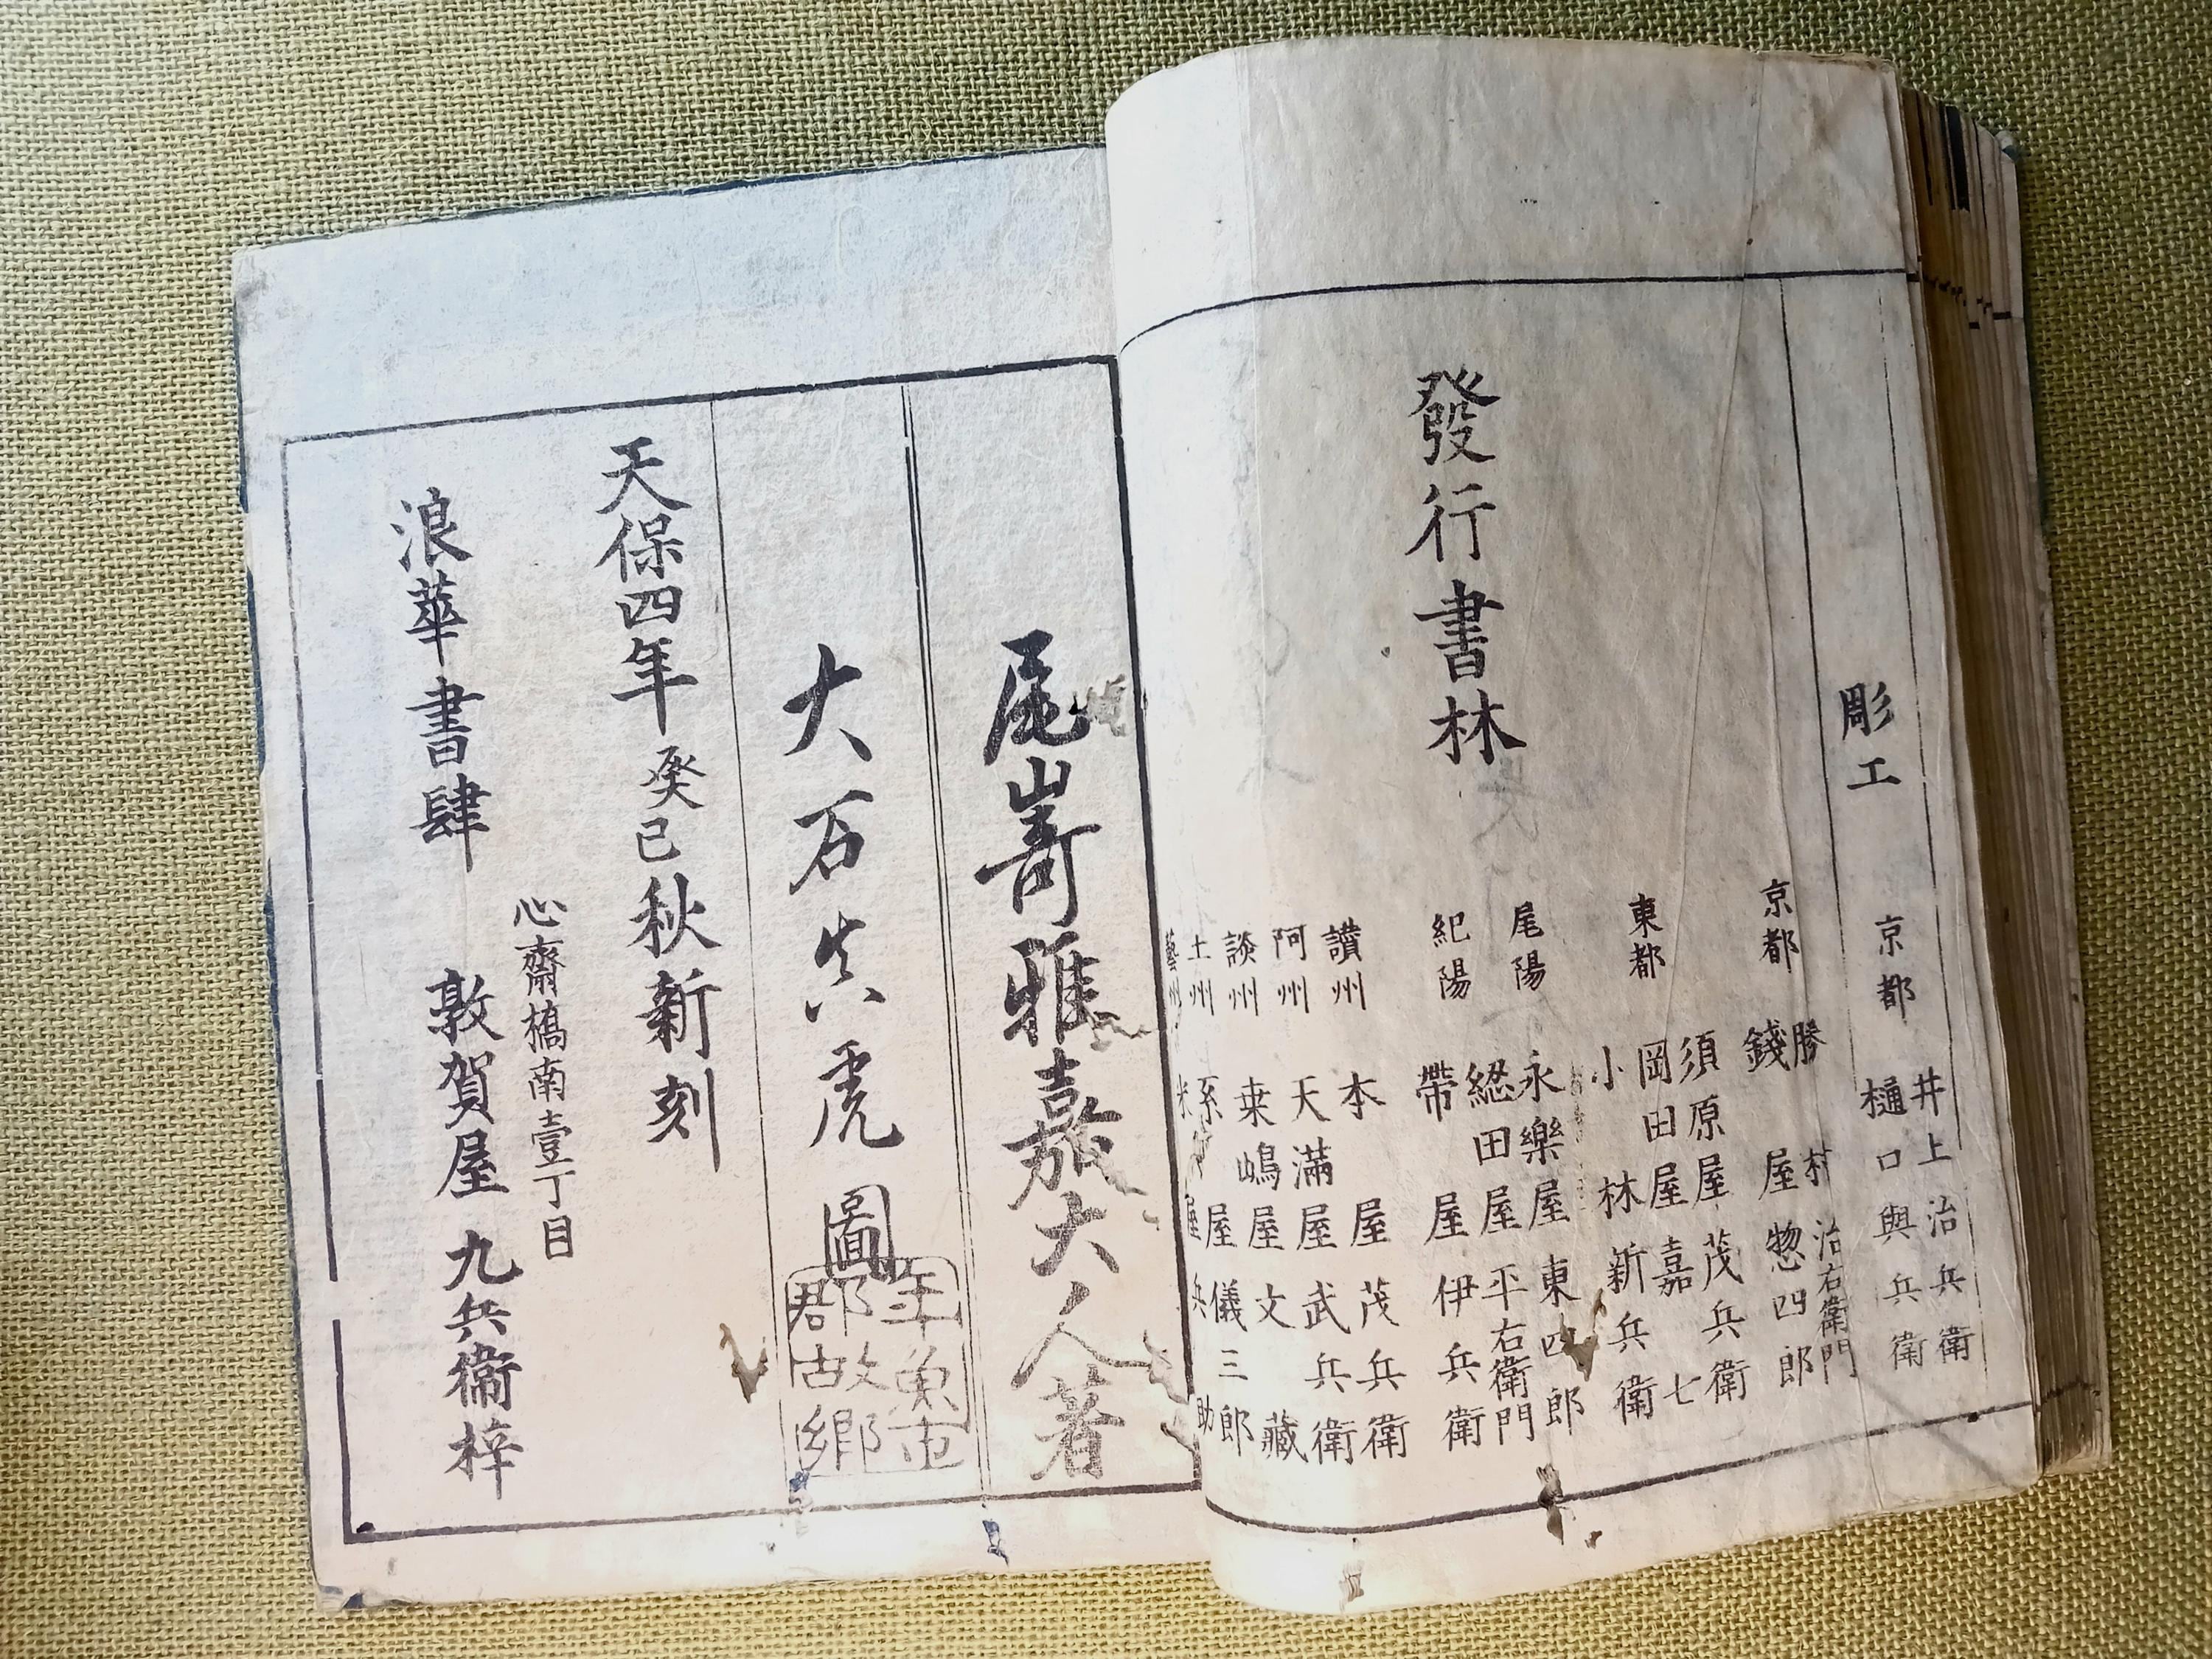 彫工
京都
井上治兵衛
樋口與兵衛
發行書林
京都
勝村治右衛門
錢屋惣四郎
東都
須原屋茂兵衛
岡田屋嘉七
小林新兵衛
尾陽
永樂屋東四郎
紀陽
綛田屋平右衛門
帶屋伊兵衛
讃州
本屋茂兵衛
阿州
天満屋武兵衛
談州
桒嶋屋文藏
土州
屋儀三郎
藝州
米屋兵助
尾嵜雅嘉大人著
大石真虎圖
天保四年癸巳秋新刻
心齋橋南壹丁目
浪華書肆
敦賀屋九兵衞梓